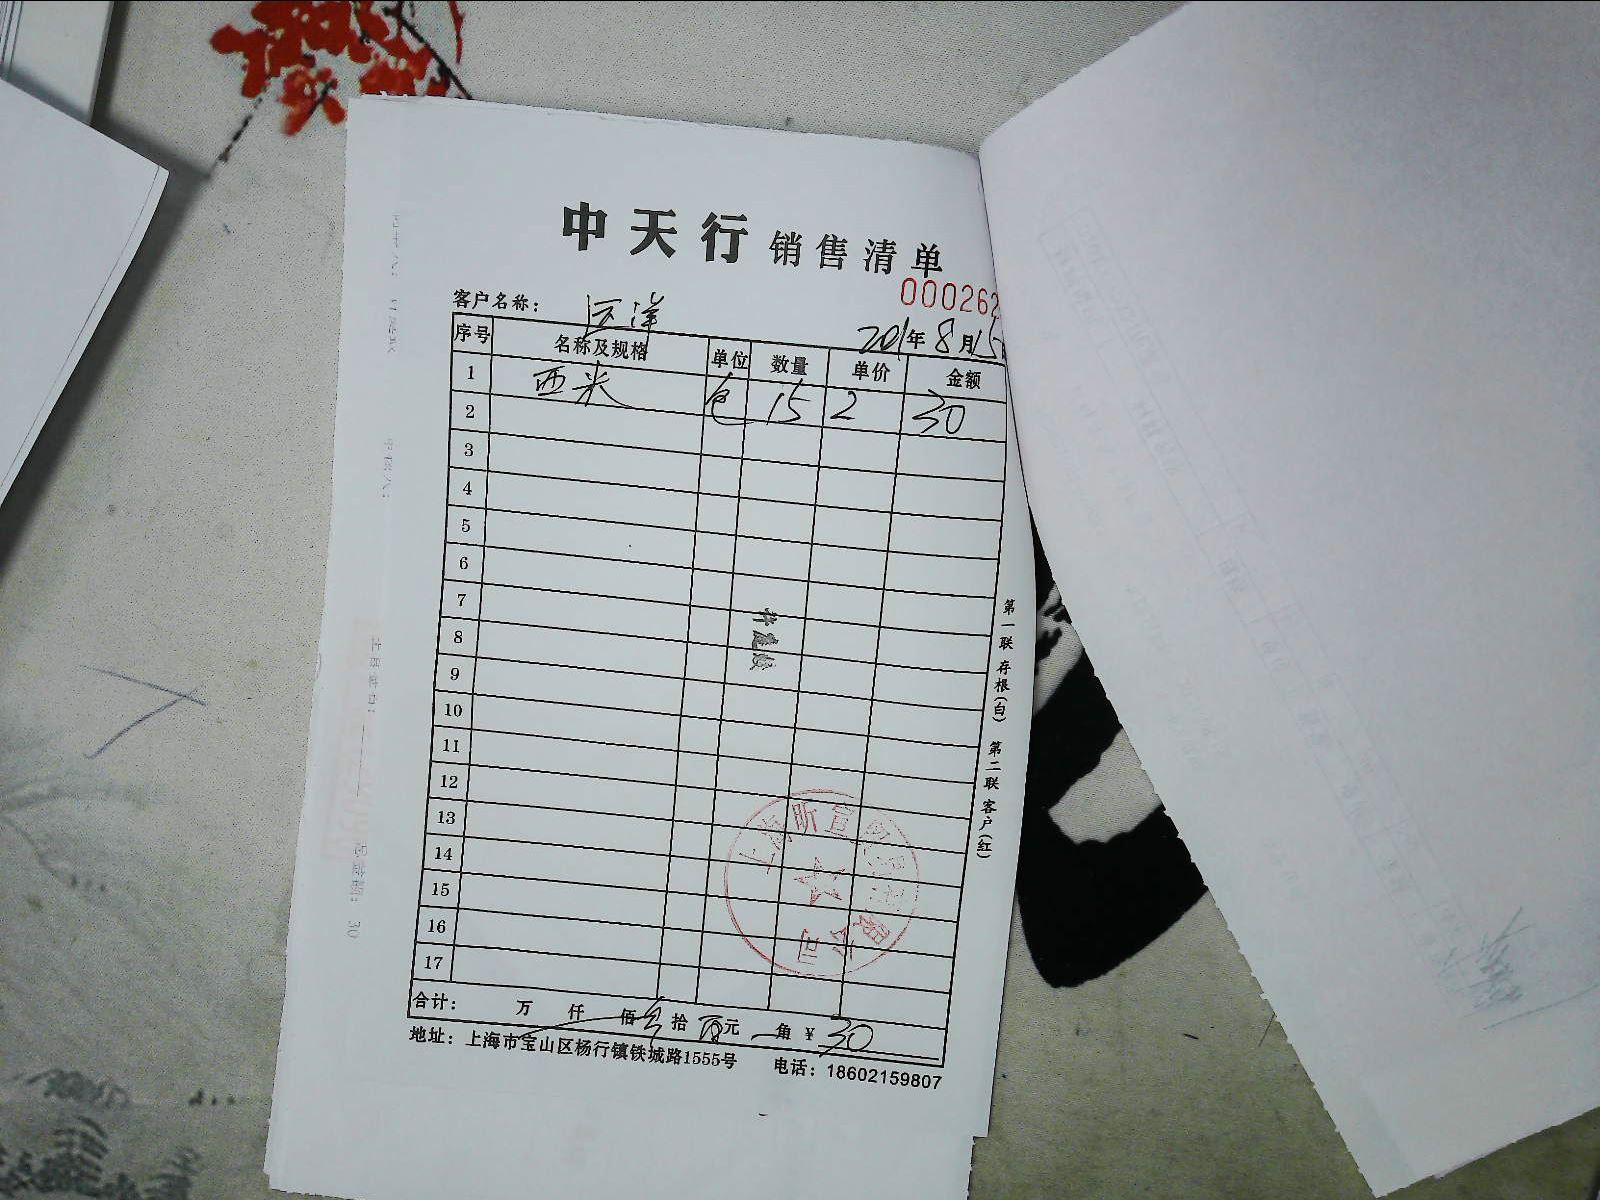 中天行 销售清单
000262
客户名称： 远洋
201 年 8 月 15
序号 名称及规格 单位 数量 单价 金额
1 西米 包 15 2 30
2
3
4
5
6
7
8
9
10
11
12
13
14
15
16
17
合计： 万 仟 佰 叁 拾 元 角 ¥ 30
地址：上海市宝山区杨行镇铁城路1555号 电话：18602159807
第一联 存根（白） 第二联 客户（红）
上海昕宣贸易有限公司